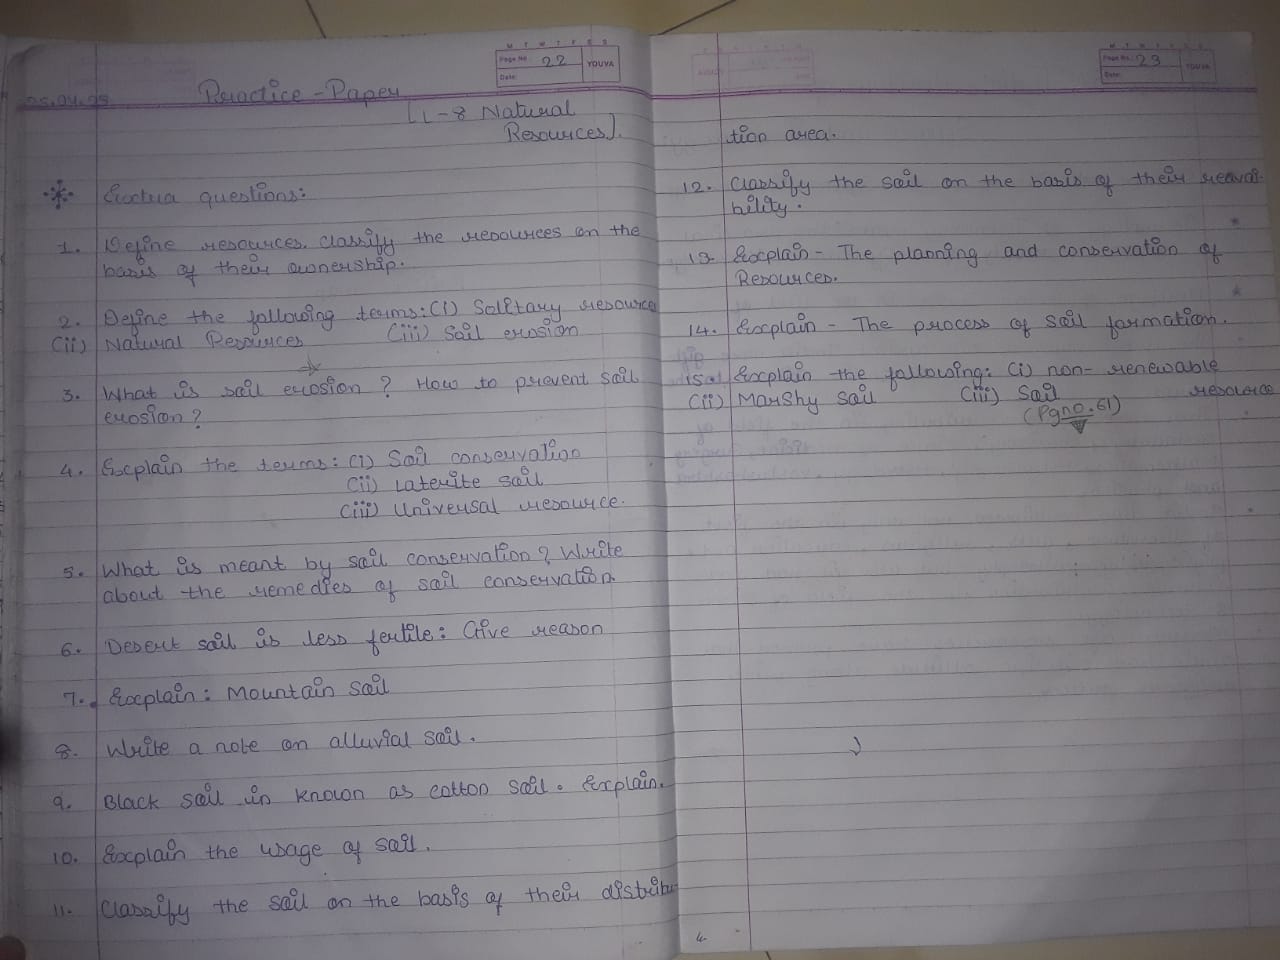 M T W T F S S
Page No. 22
Date:
YOUVA
Practice-Paper
[L-8 Natural
Resources].
Exctra questions:
1. Define resources. classify the resources on the
basis of their ownership.
2. Define the following terms: (i) Solitary resource
(ii) Natural Resources (iii) Soil erosion
3. What is soil erosion? How to prevent soil
erosion?
4. Explain the terms: (i) Soil conservation
(ii) Laterite soil
(iii) Universal resource.
5. What is meant by soil conservation? Write
about the remedies of soil conservation.
6. Desert soil is less fertile: Give reason
7. Explain: Mountain soil
8. Write a note on alluvial soil.
9. Black soil is known as cotton soil. Explain.
10. Explain the usage of soil.
11. Classify the soil on the basis of their distribu
Page No. 23
Date:
YOUVA
tion area.
12. Classify the soil on the basis of their
bility.
13. Explain - The planning and conservation of
Resources.
14. Explain - The process of soil formation.
15. Explain the following: (i) non-renewable
resource
(ii) Marshy soil (iii) Soil
(Pg no. 61)